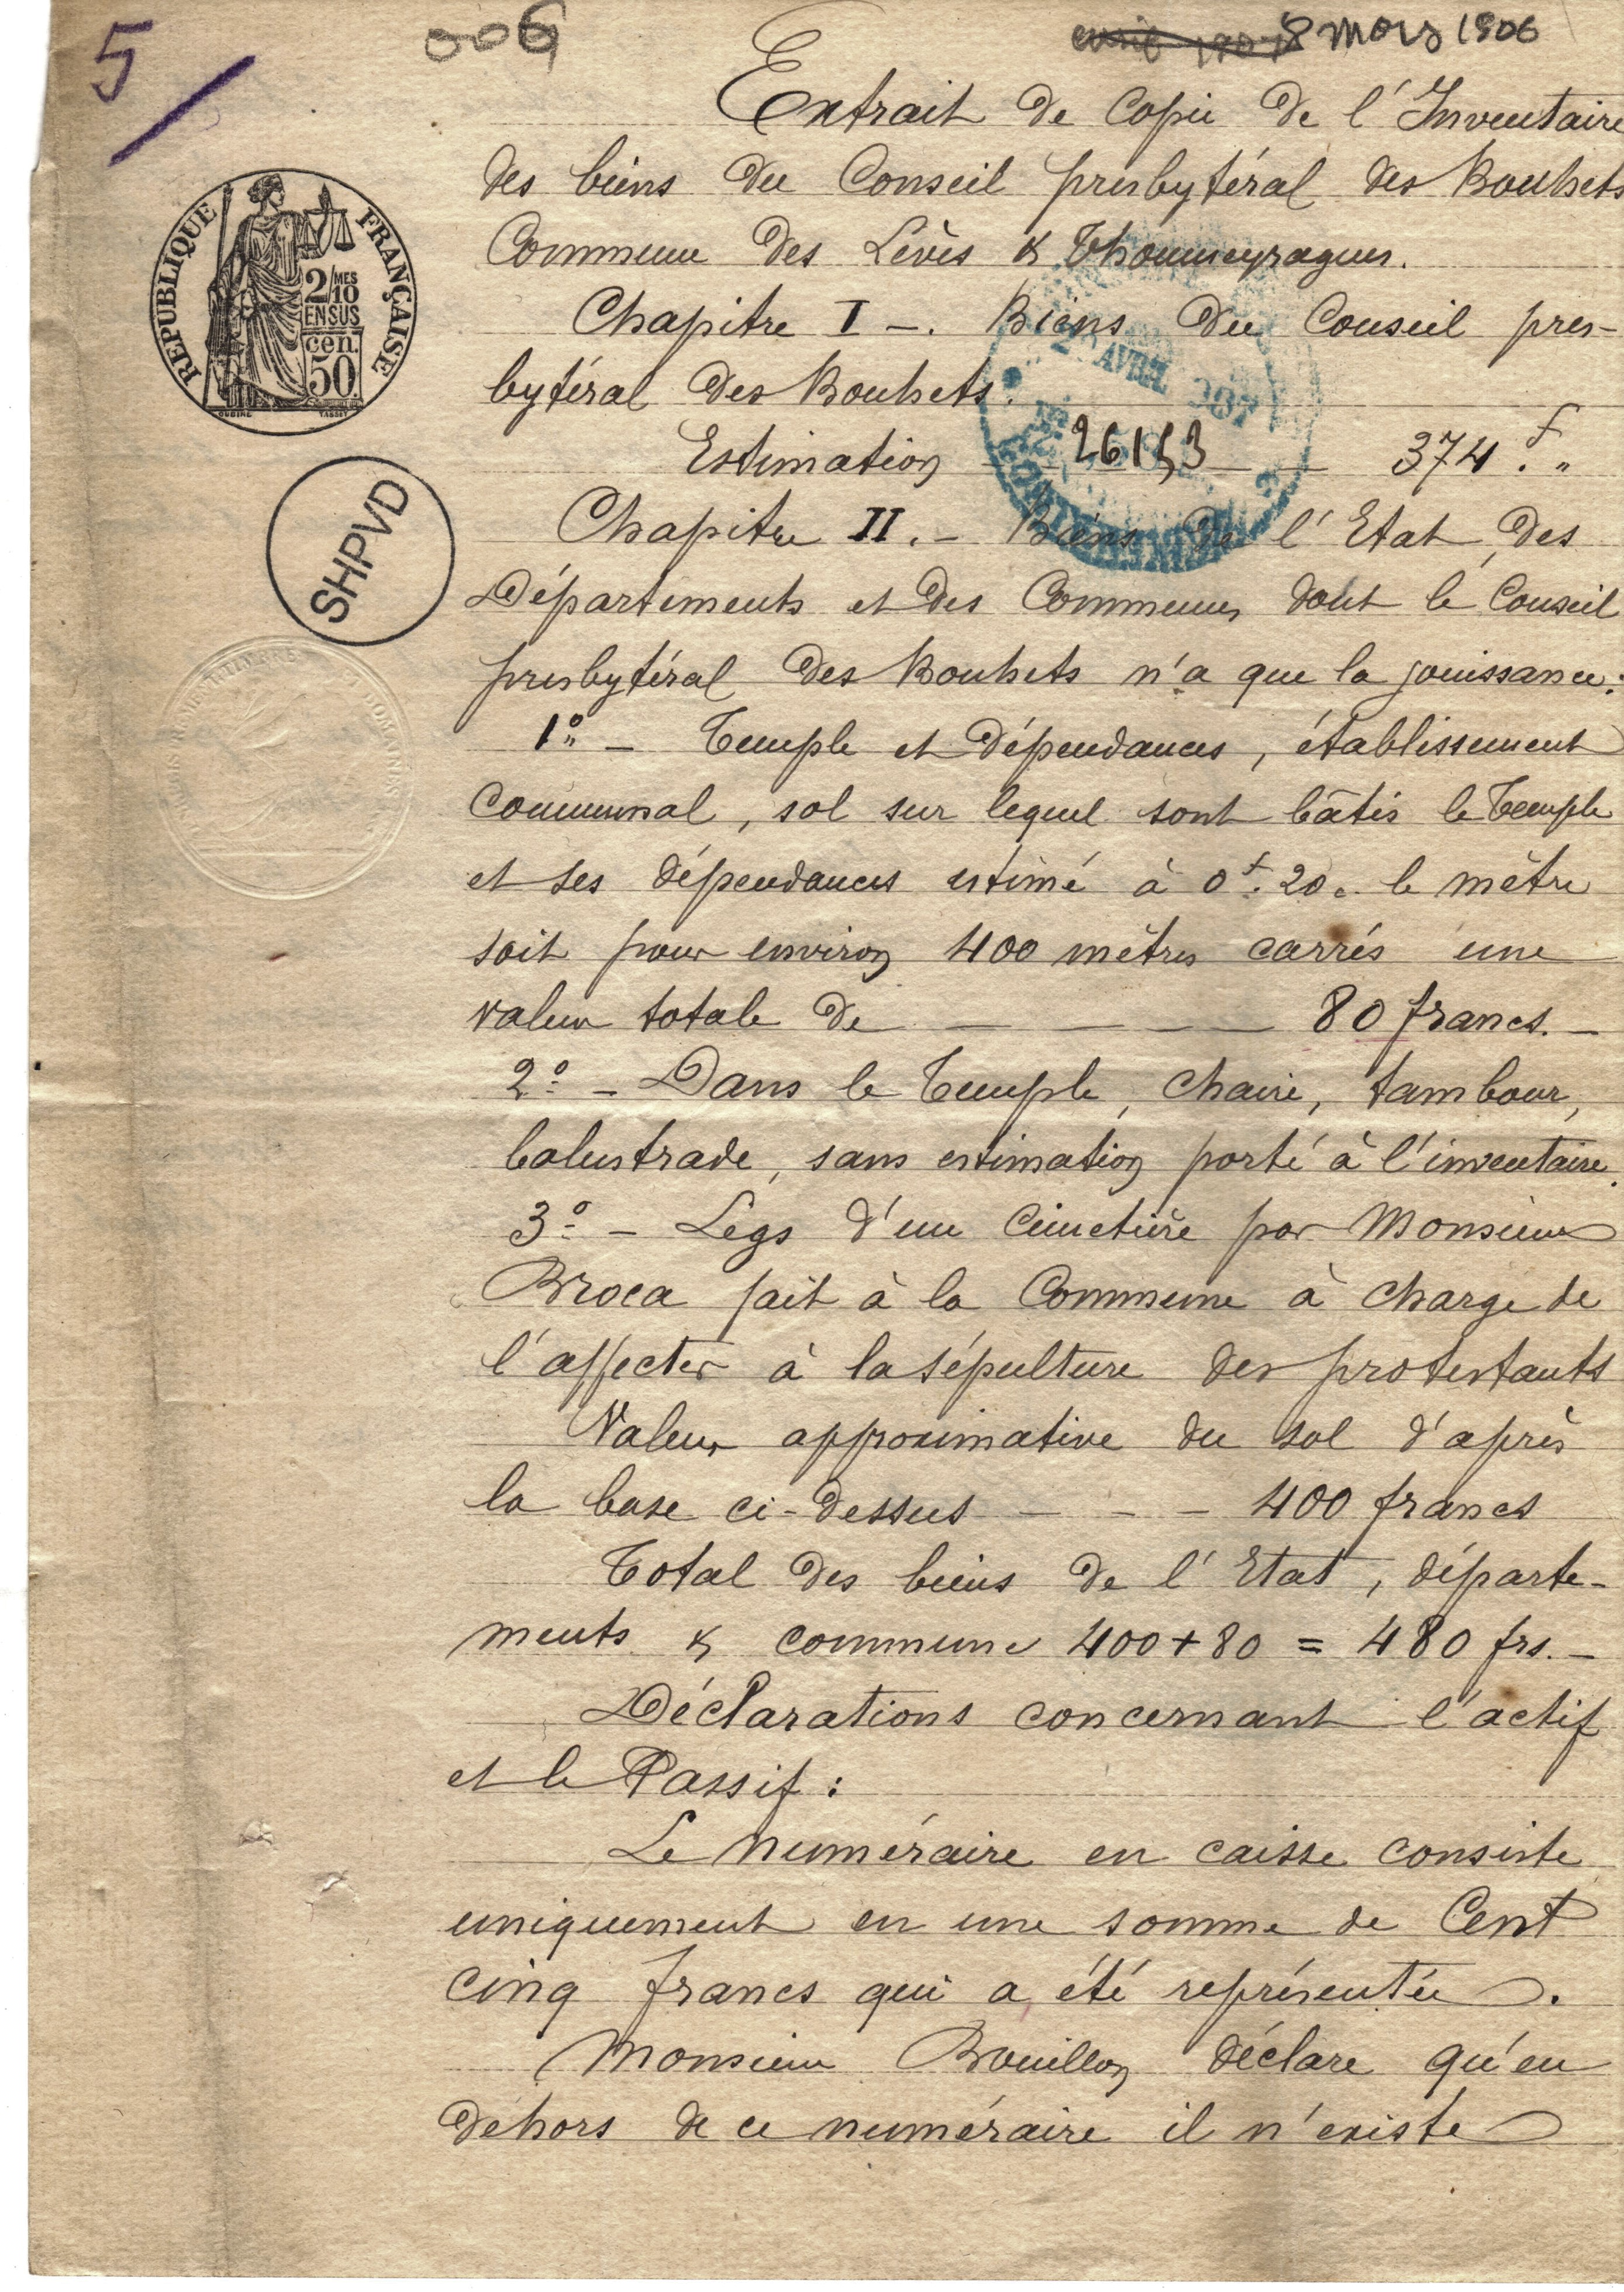 5
006
8 mars 1906
Extrait de Copie de l'Inventaire
des biens du Conseil presbytéral des Bouhets
Commune des Lèves & Thoumeyragues.
Chapitre I -. Biens du Conseil pres-
bytéral des Bouhets.
Estimation 374 f. "
26153
AVRIL 907
Chapitre II. - Biens de l'Etat, des
Départements et des Communes dont le Conseil
presbytéral des Bouhets n'a que la jouissance:
1° - Temple et Dépendances, établissement
Communal, sol sur lequel sont bâtis le Temple
et ses dépendances estimé à 0f. 20c. le mètre
soit pour environ 400 mètres carrés une
valeur totale de - - - - 80 francs. -
2° - Dans le Temple, chaire, tambour,
balustrade, sans estimation porté à l'inventaire.
3° - Legs d'un Cimetière par Monsieur
Broca fait à la Commune à charge de
l'affecter à la sépulture des protestants
Valeur approximative du sol d'après
la base ci-dessus - - - 400 francs
Total des biens de l'Etat, départe-
ments & commune 400 + 80 = 480 frs. -
Déclarations concernant l'actif
et le Passif :
Le numéraire en caisse consiste
uniquement en une somme de Cent
cinq francs qui a été représentée.
Monsieur Bouillon déclare qu'en
dehors de ce numéraire il n'existe
RÉPUBLIQUE FRANÇAISE
2/MES
10
EN SUS
cen.
50
OUDINÉ TASSET
SHPVD